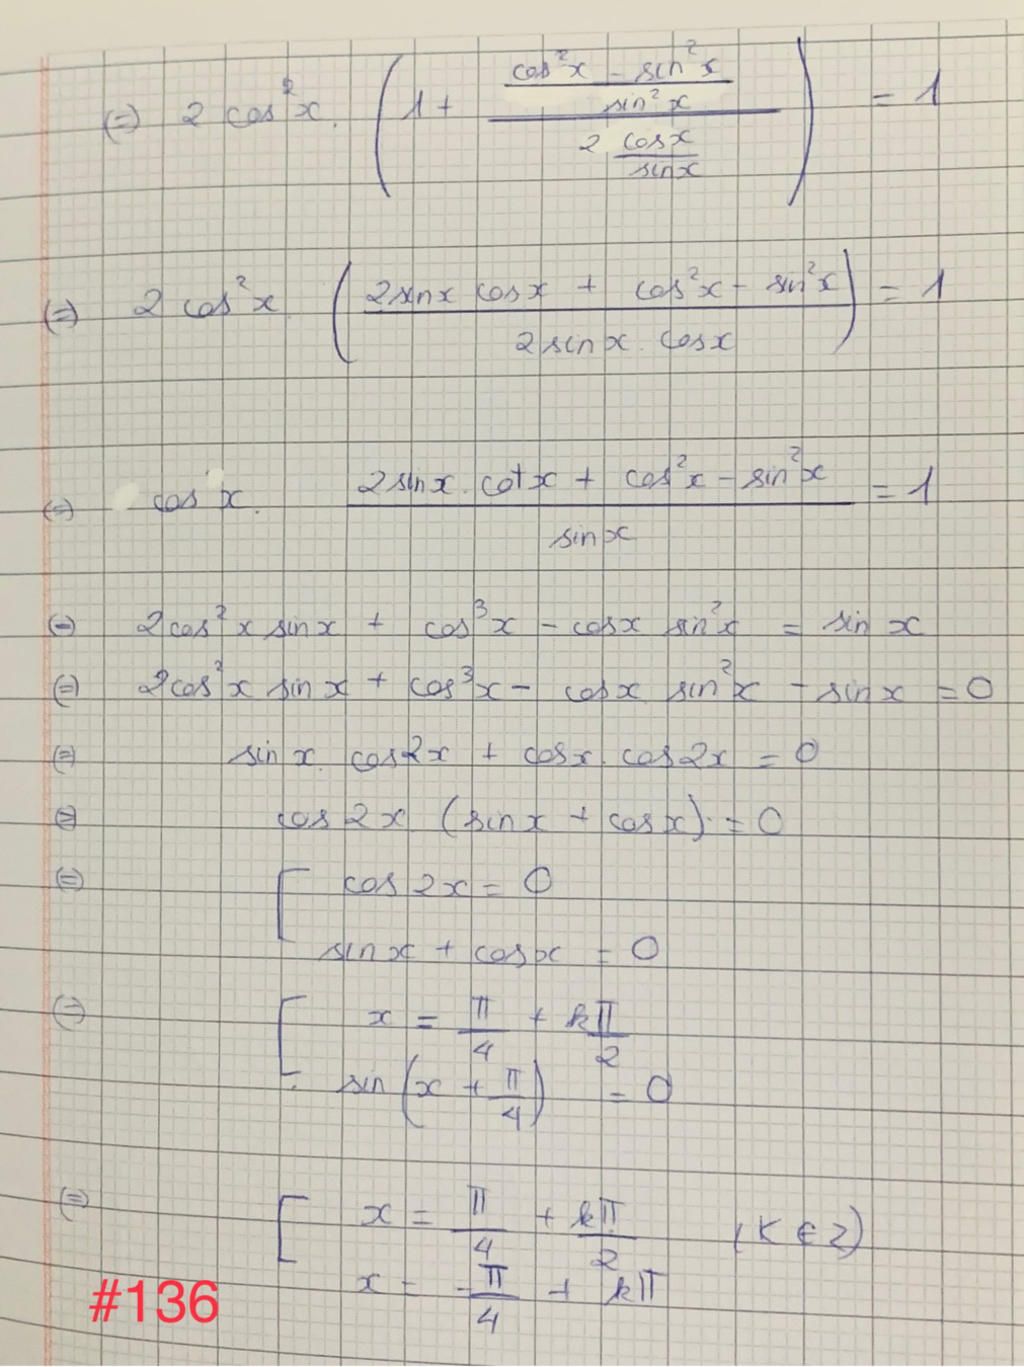 (=) 2 cos²x . (1 + ((cos²x - sin²x)/(sin²x))/(2 (cosx)/(sinx))) = 1
(=) 2 cos²x (2sinx cosx + cos²x - sin²x)/(2 sinx . cosx) = 1
(=) cos x . (2sinx . cotx + cos²x - sin²x)/(sinx) = 1
(=) 2cos²x sinx + cos³x - cosx sin²x = sin x
(=) 2cos²x sin x + cos³x - cosx sin²x - sin x = 0
(=) sin x . cos2x + cosx . cos2x = 0
(=) cos 2x (sinx + cosx) = 0
(=) [ cos 2x = 0
sinx + cosx = 0
(=) [ x = π/4 + kπ/2
sin(x + π/4) = 0
(=) [ x = π/4 + kπ/2 (K ∈ Z)
x = -π/4 + kπ
#136